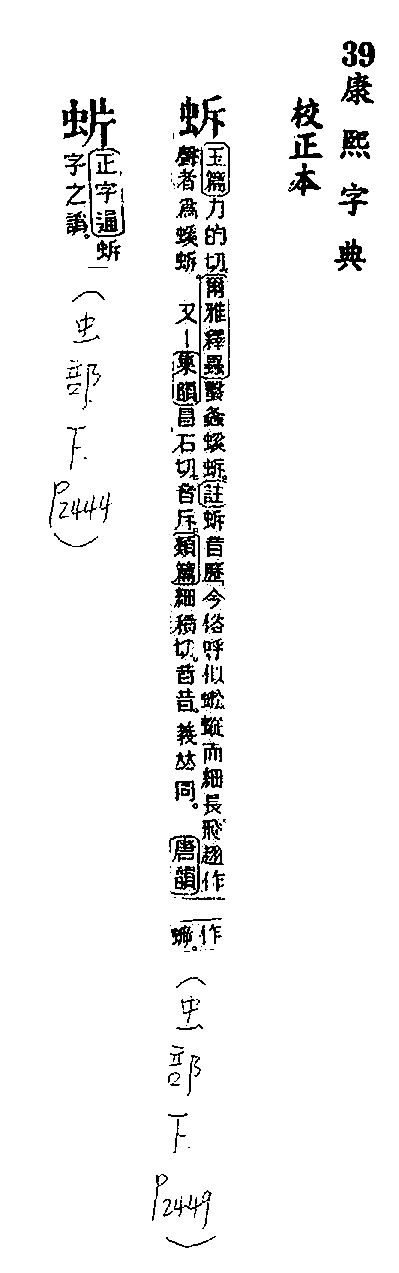 39康熙字典
校正本
蚸
玉篇力的切。爾雅釋蟲蟿螽螇蚸。註蚸音歷今俗呼似而細長飛翅作
聲者爲螇蚸。 又丨集韻昌石切音斥。類篇細積切音昔。義𠀤同。 唐韻
作
(虫部下P2449)
正字通蚸
字之譌。
(虫部下P2444)